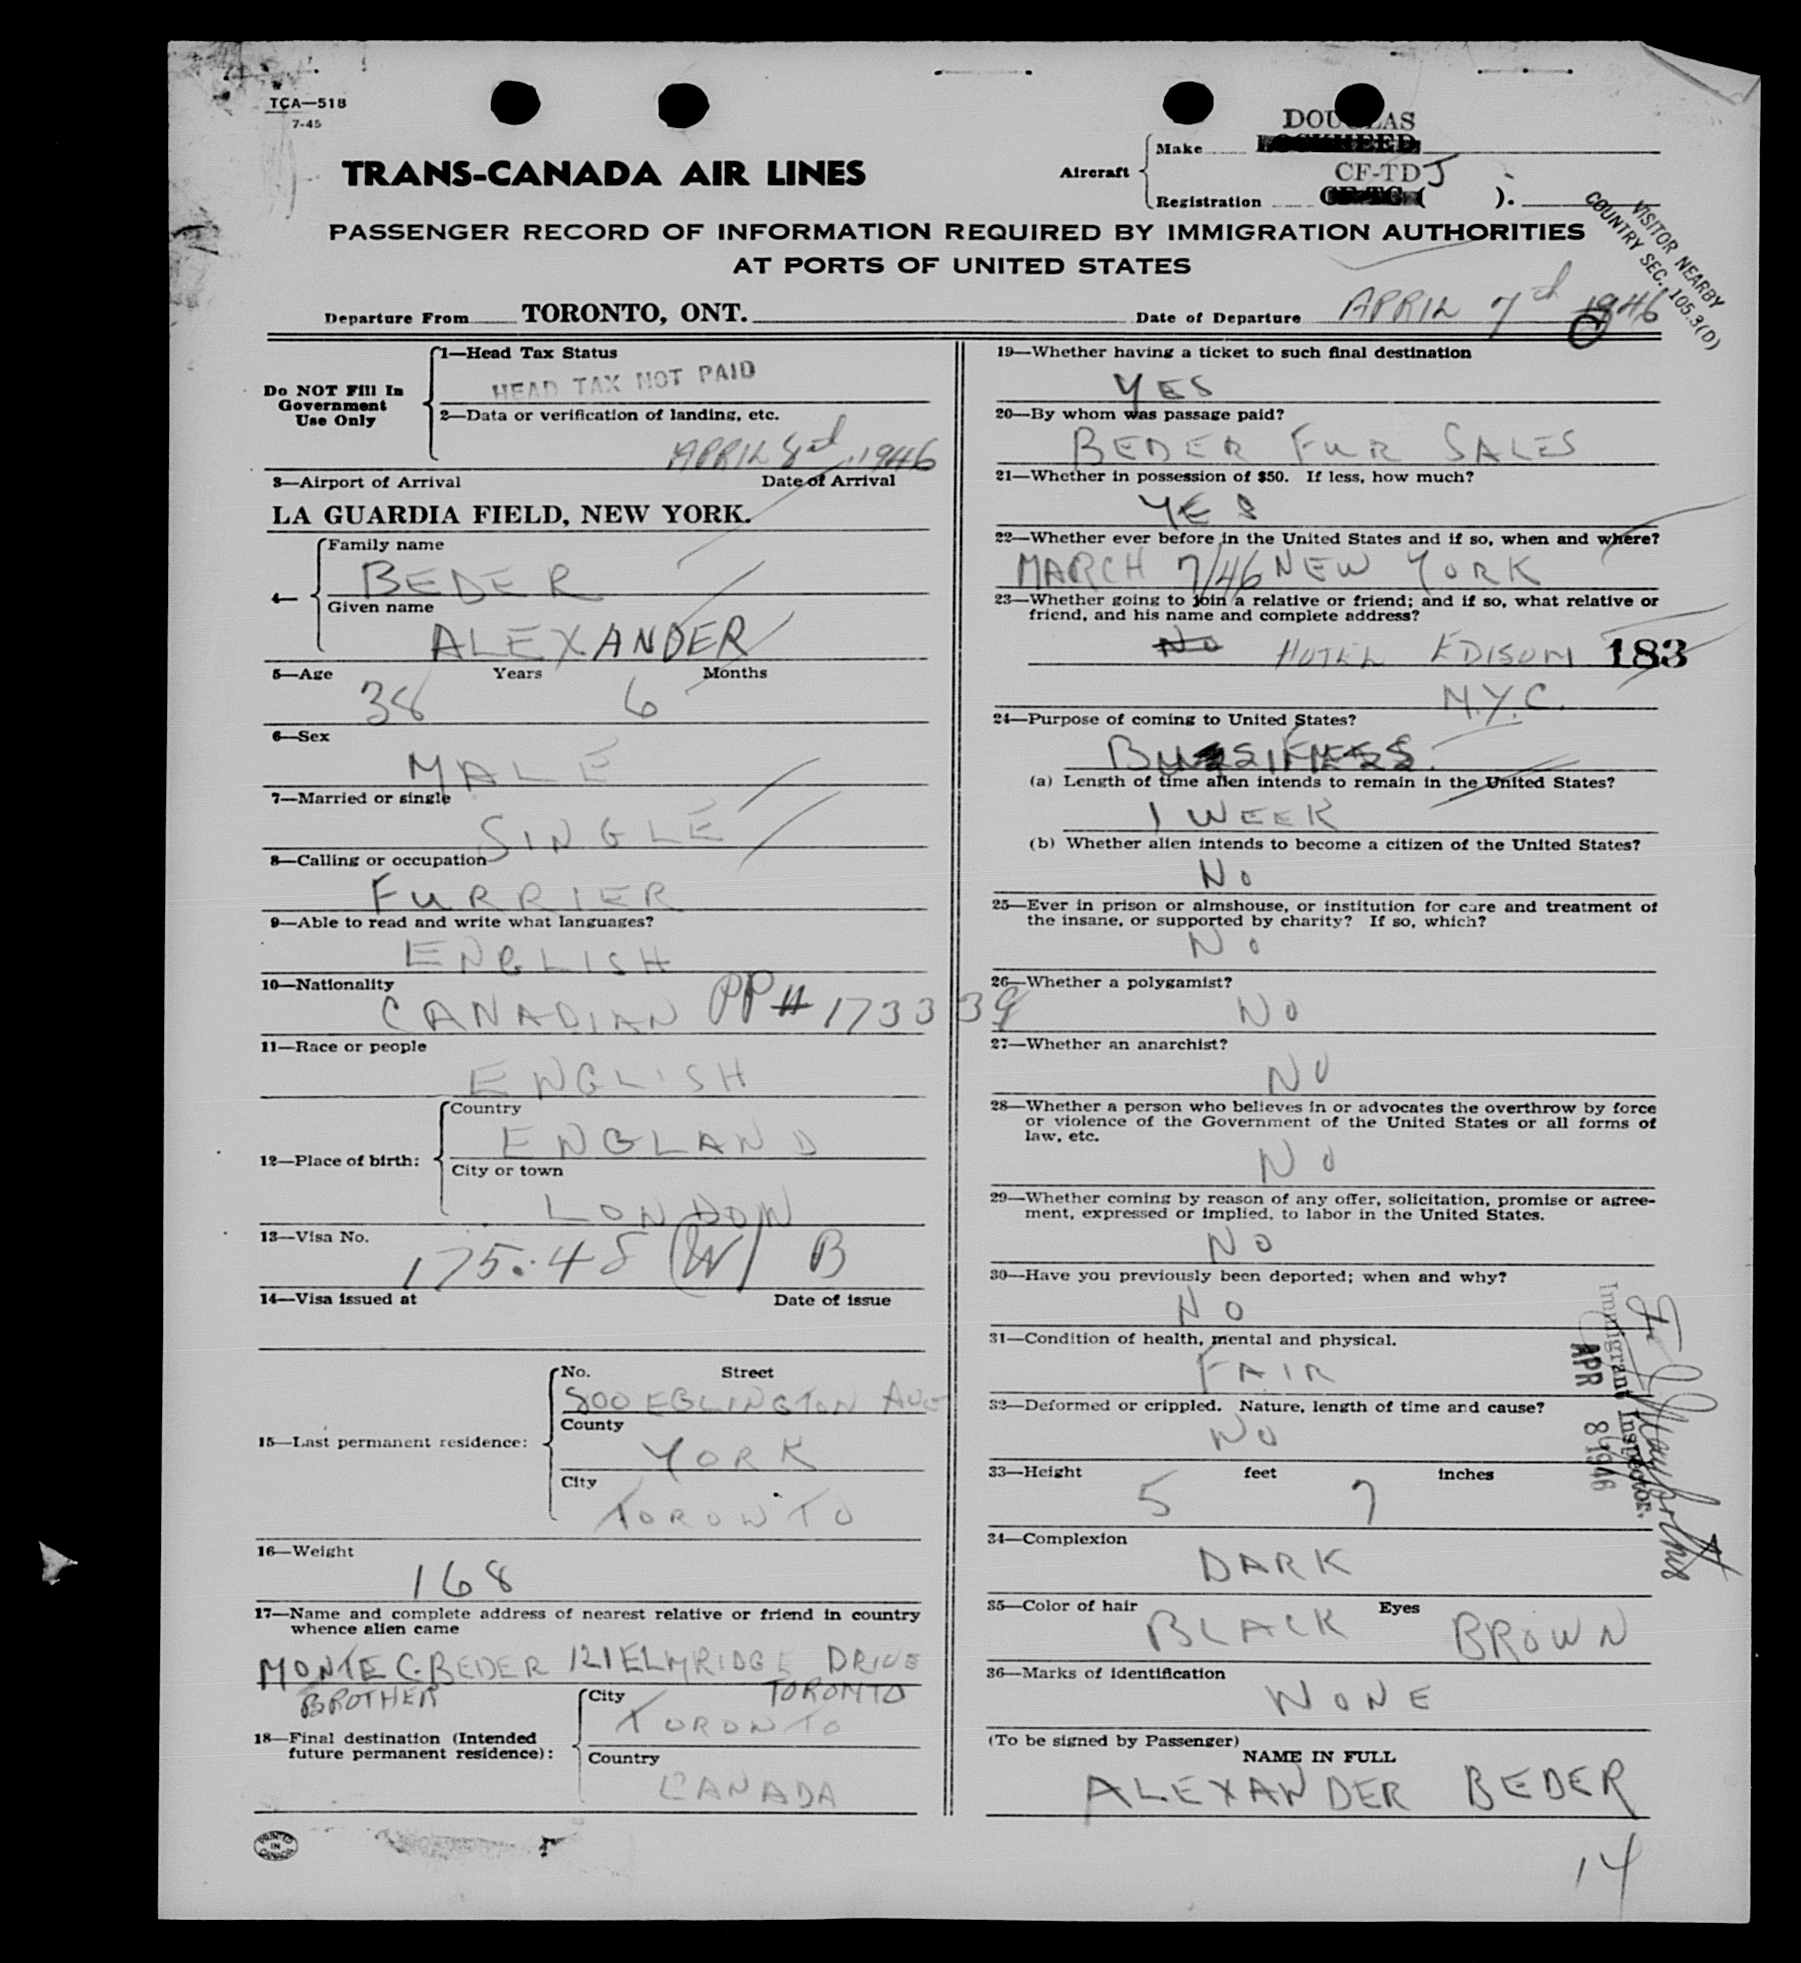 TCA—518
7-45
TRANS-CANADA AIR LINES
Aircraft
Make DOUGLAS
LOCKHEED
Registration CF-TDJ
CF-TC ( ).
VISITOR NEARBY
COUNTRY SEC. 105.3(D)
PASSENGER RECORD OF INFORMATION REQUIRED BY IMMIGRATION AUTHORITIES
AT PORTS OF UNITED STATES
Departure From TORONTO, ONT. Date of Departure APRIL 7th 1946
Do NOT Fill In
Government
Use Only
1—Head Tax Status
HEAD TAX NOT PAID
2—Data or verification of landing, etc.
APRIL 8 1946
3—Airport of Arrival Date of Arrival
LA GUARDIA FIELD, NEW YORK.
4—
Family name
BEDER
Given name
ALEXANDER
5—Age Years Months
38 6
6—Sex
MALE
7—Married or single
SINGLE
8—Calling or occupation
FURRIER
9—Able to read and write what languages?
ENGLISH
10—Nationality
CANADIAN PP # 173339
11—Race or people
ENGLISH
12—Place of birth:
Country
ENGLAND
City or town
LONDON
13—Visa No.
175.48 (W) B
14—Visa issued at Date of issue
15—Last permanent residence:
No. Street
800 EGLINGTON AVE
County
YORK
City
TORONTO
16—Weight
168
17—Name and complete address of nearest relative or friend in country
whence alien came
MONTE C. BEDER 121 ELMRIDGE DRIVE
BROTHER TORONTO
18—Final destination (Intended
future permanent residence):
City
TORONTO
Country
CANADA
PRINTED
IN
CANADA
19—Whether having a ticket to such final destination
YES
20—By whom was passage paid?
BEDER FUR SALES
21—Whether in possession of $50. If less, how much?
YES
22—Whether ever before in the United States and if so, when and where?
MARCH 7/46 NEW YORK
23—Whether going to join a relative or friend; and if so, what relative or
friend, and his name and complete address?
No HOTEL EDISON 183
N.Y.C.
24—Purpose of coming to United States?
BUSSINESS.
(a) Length of time alien intends to remain in the United States?
1 WEEK
(b) Whether alien intends to become a citizen of the United States?
No
25—Ever in prison or almshouse, or institution for care and treatment of
the insane, or supported by charity? If so, which?
No
26—Whether a polygamist?
NO
27—Whether an anarchist?
NO
28—Whether a person who believes in or advocates the overthrow by force
or violence of the Government of the United States or all forms of
law, etc.
NO
29—Whether coming by reason of any offer, solicitation, promise or agree-
ment, expressed or implied, to labor in the United States.
NO
30—Have you previously been deported; when and why?
NO
31—Condition of health, mental and physical.
FAIR
32—Deformed or crippled. Nature, length of time and cause?
NO
33—Height feet inches
5 7
34—Complexion
DARK
35—Color of hair Eyes
BLACK BROWN
36—Marks of identification
NONE
(To be signed by Passenger)
NAME IN FULL
ALEXANDER BEDER
14
Immigrant Inspector.
APR 8 1946